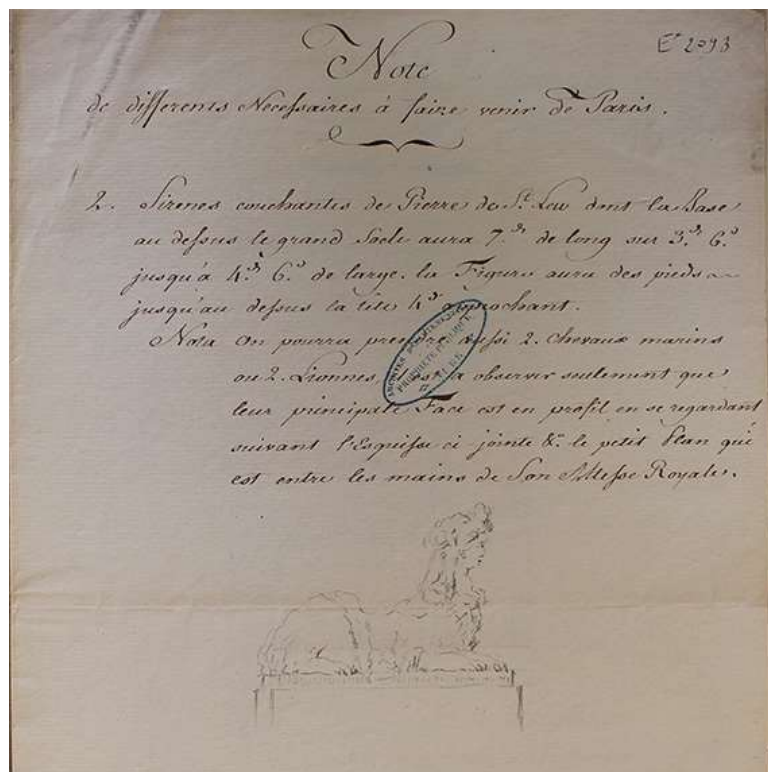 Note
Er 2093
de differents Necessaires à faire venir de Paris.
2. Sirenes couchantes de Pierre de St. Leu dont la Base
au dessus le grand Socle aura 7.ds de long sur 3.ds 6.d
jusqu'à 4.ds 6.d de large. la Figure aura des pieds
jusqu'au dessus la tête 4.d aprochant.
Nota on pourra prendre aussi 2. chevaux marins
ou 2. Lionnes, à observer seulement que
leur principale Face est en profil en se regardant
suivant l'Esquisse ci jointe &. le petit Plan qui
est entre les mains de Son Altesse Royale.
PROPRIÉTÉ PUBLIQUE